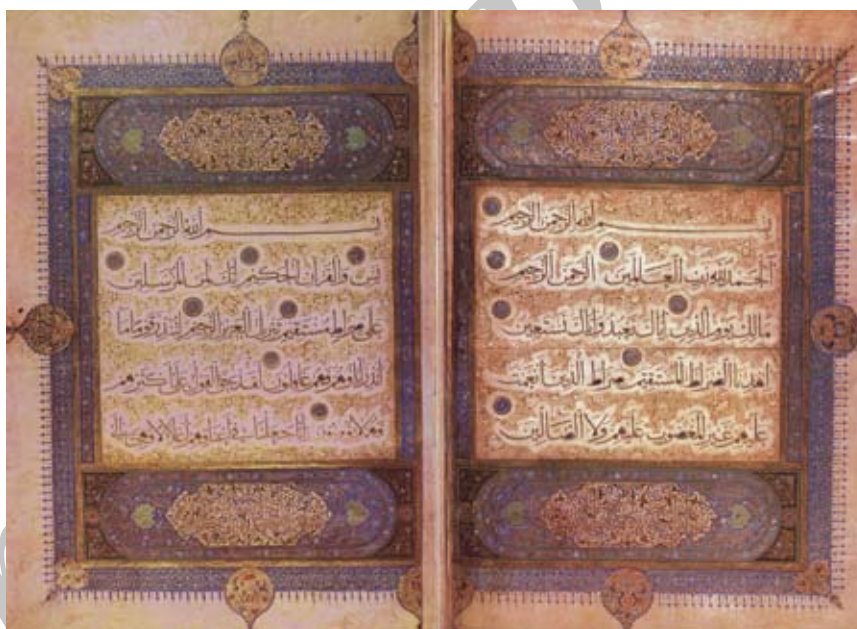 بسم الله الرحمن الرحيم
الحمد لله رب العالمين الرحمن الرحيم
مالك يوم الدين إياك نعبد وإياك نستعين
اهدنا الصراط المستقيم صراط الذين أنعمت
عليهم غير المغضوب عليهم ولا الضالين
بسم الله الرحمن الرحيم
يس والقرآن الحكيم إنك لمن المرسلين
على صراط مستقيم تنزيل العزيز الرحيم لتنذر قوما ما
أنذر آباؤهم فهم غافلون لقد حق القول على أكثرهم
فهم لا يؤمنون إنا جعلنا في أعناقهم أغلالا فهي إلى